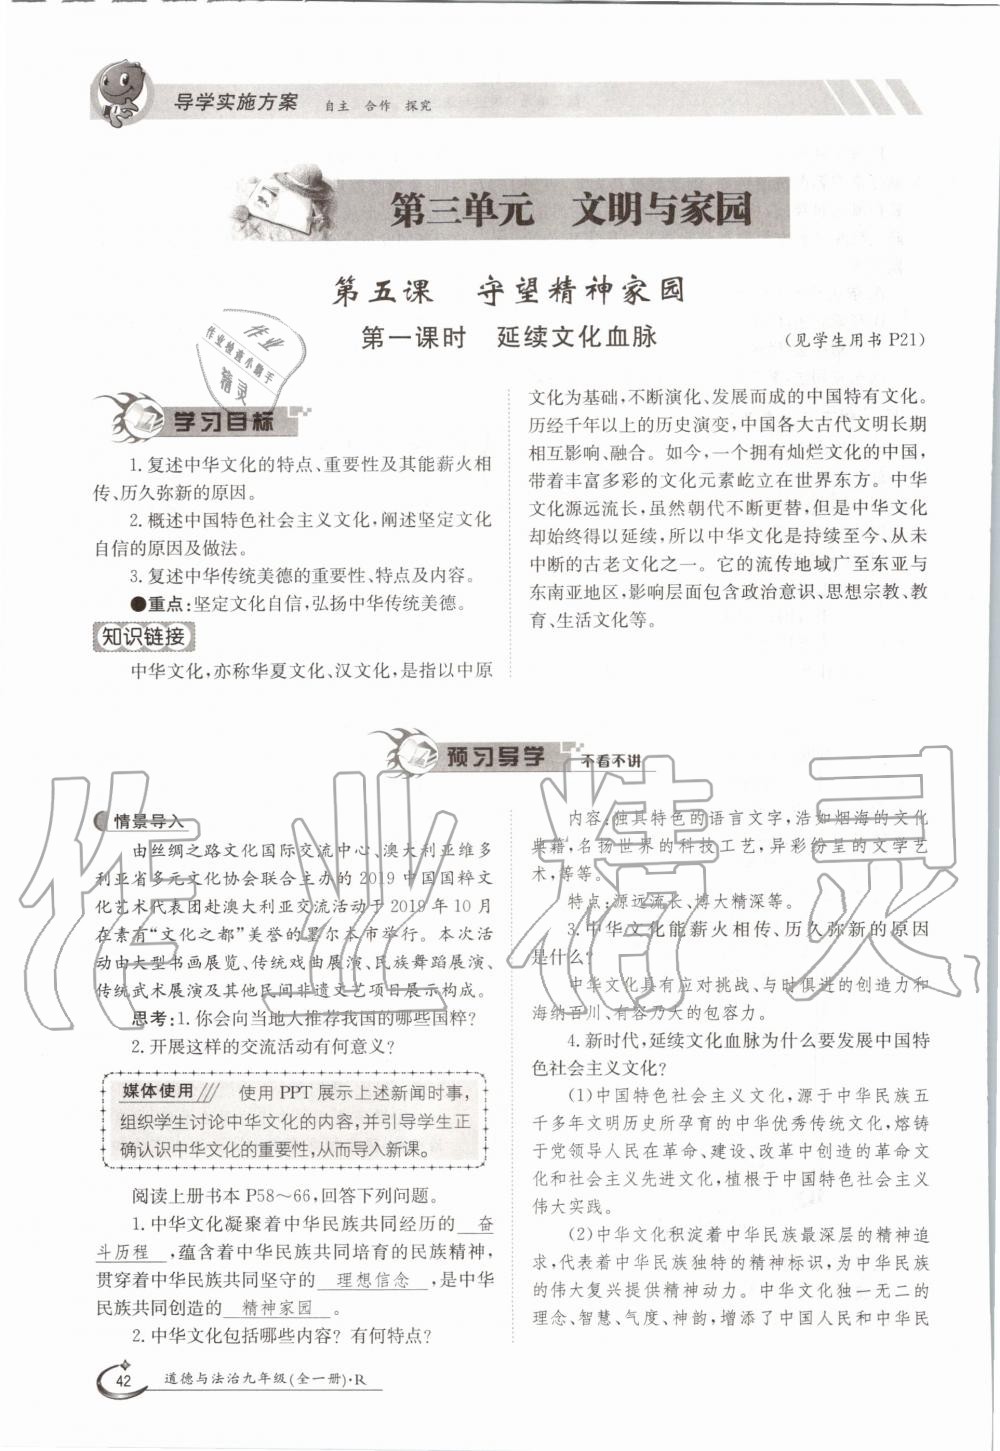 导学实施方案 自主 合作 探究
第三单元 文明与家园
第五课 守望精神家园
第一课时 延续文化血脉
(见学生用书 P21)
作业
作业检查小助手
精灵
学习目标
1. 复述中华文化的特点、重要性及其能薪火相
传、历久弥新的原因。
2. 概述中国特色社会主义文化,阐述坚定文化
自信的原因及做法。
3. 复述中华传统美德的重要性、特点及内容。
●重点:坚定文化自信,弘扬中华传统美德。
知识链接
中华文化,亦称华夏文化、汉文化,是指以中原
文化为基础,不断演化、发展而成的中国特有文化。
历经千年以上的历史演变,中国各大古代文明长期
相互影响、融合。如今,一个拥有灿烂文化的中国,
带着丰富多彩的文化元素屹立在世界东方。中华
文化源远流长,虽然朝代不断更替,但是中华文化
却始终得以延续,所以中华文化是持续至今、从未
中断的古老文化之一。它的流传地域广至东亚与
东南亚地区,影响层面包含政治意识、思想宗教、教
育、生活文化等。
预习导学 不看不讲
情景导入
由丝绸之路文化国际交流中心、澳大利亚维多
利亚省多元文化协会联合主办的 2019 中国国粹文
化艺术代表团赴澳大利亚交流活动于 2019 年 10 月
在素有“文化之都”美誉的墨尔本市举行。本次活
动由大型书画展览、传统戏曲展演、民族舞蹈展演、
传统武术展演及其他民间非遗文艺项目展示构成。
思考:1. 你会向当地人推荐我国的哪些国粹?
2. 开展这样的交流活动有何意义?
媒体使用 使用 PPT 展示上述新闻时事,
组织学生讨论中华文化的内容,并引导学生正
确认识中华文化的重要性,从而导入新课。
阅读上册书本 P58～66,回答下列问题。
1. 中华文化凝聚着中华民族共同经历的 奋
斗历程 ,蕴含着中华民族共同培育的民族精神,
贯穿着中华民族共同坚守的 理想信念 ,是中华
民族共同创造的 精神家园 。
2. 中华文化包括哪些内容? 有何特点?
内容:独具特色的语言文字,浩如烟海的文化
典籍,名扬世界的科技工艺,异彩纷呈的文学艺
术,等等。
特点:源远流长、博大精深等。
3. 中华文化能薪火相传、历久弥新的原因
是什么?
中华文化具有应对挑战、与时俱进的创造力和
海纳百川、有容乃大的包容力。
4. 新时代,延续文化血脉为什么要发展中国特
色社会主义文化?
(1)中国特色社会主义文化,源于中华民族五
千多年文明历史所孕育的中华优秀传统文化,熔铸
于党领导人民在革命、建设、改革中创造的革命文
化和社会主义先进文化,植根于中国特色社会主义
伟大实践。
(2)中华文化积淀着中华民族最深层的精神追
求,代表着中华民族独特的精神标识,为中华民族
的伟大复兴提供精神动力。中华文化独一无二的
理念、智慧、气度、神韵,增添了中国人民和中华民
42 道德与法治九年级(全一册)·R
作业精灵